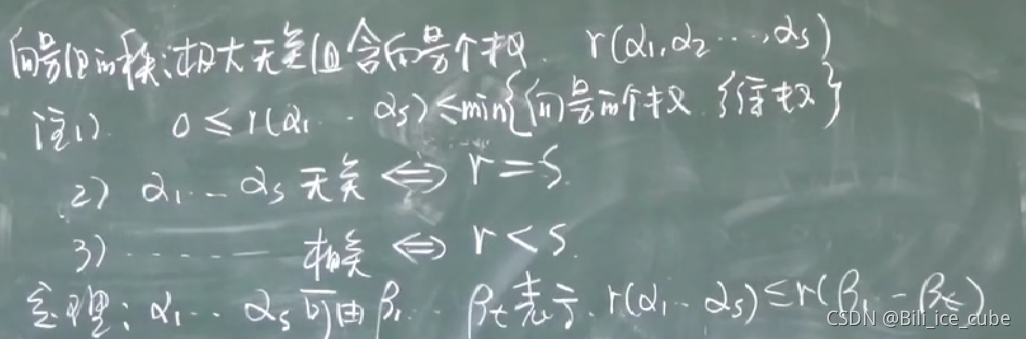 向量组的秩:极大无关组含向量个数. r(α₁,α₂⋯,αs)
注1) 0≤r(α₁⋯αs)≤min{向量的个数.维数}
2) α₁⋯αs 无关 ⇔ r=s.
3) ⋯⋯⋯ 相关 ⇔ r<s.
定理:α₁⋯αs可由β₁⋯βt表示. r(α₁⋯αs)≤r(β₁⋯βt)
CSDN @Bili_ice_cube